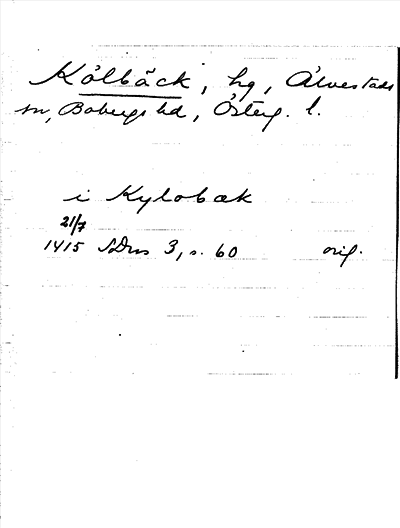 Kålbäck, hg, Älvestads
sn, Bobergs hd, Österg. l.
i Kylobæk
21/7
1415 SDns 3, s. 60 orig.